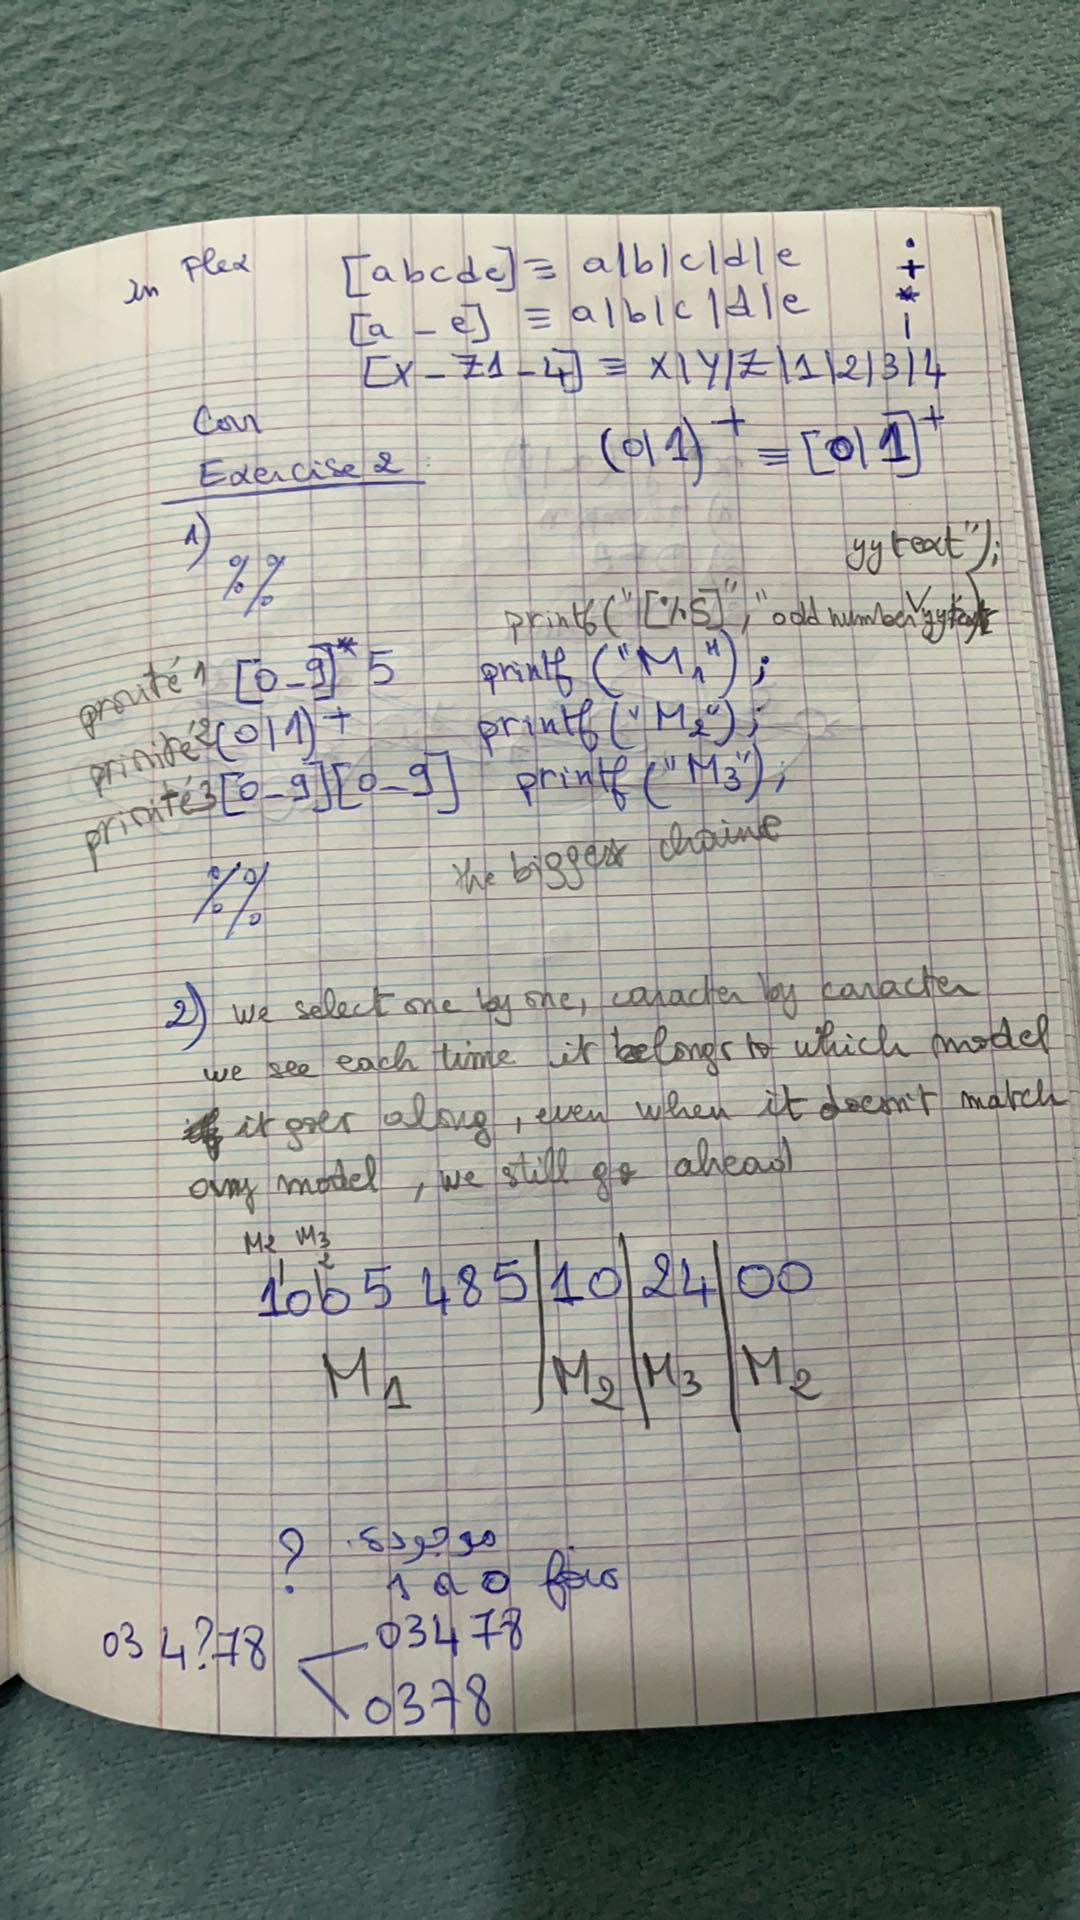 in Flex [abcde] ≡ a|b|c|d|e .
[a-e] ≡ a|b|c|d|e +
*
|
[X-Z1-4] ≡ X|Y|Z|1|2|3|4
Corr (0|1)⁺ ≡ [0|1]⁺
Exercise 2
1)
%% yytext");
printf("[%S]", "odd number
priorité 1 [0-9]* 5 printf ("M1");
priorité 2 (0|1)⁺ printf("M2");
priorité 3 [0-9][0-9] printf("M3");
the biggest chaine
%%
2) we select one by one, caracter by caracter
we see each time it belongs to which model
it goes along, even when it doesn't match
any model, we still go ahead
M2 M3
1 2
1005 485|10|24|00
M1 |M2|M3|M2
? موجودة.
1 ou 0 fois
03 4?78 03478
0378